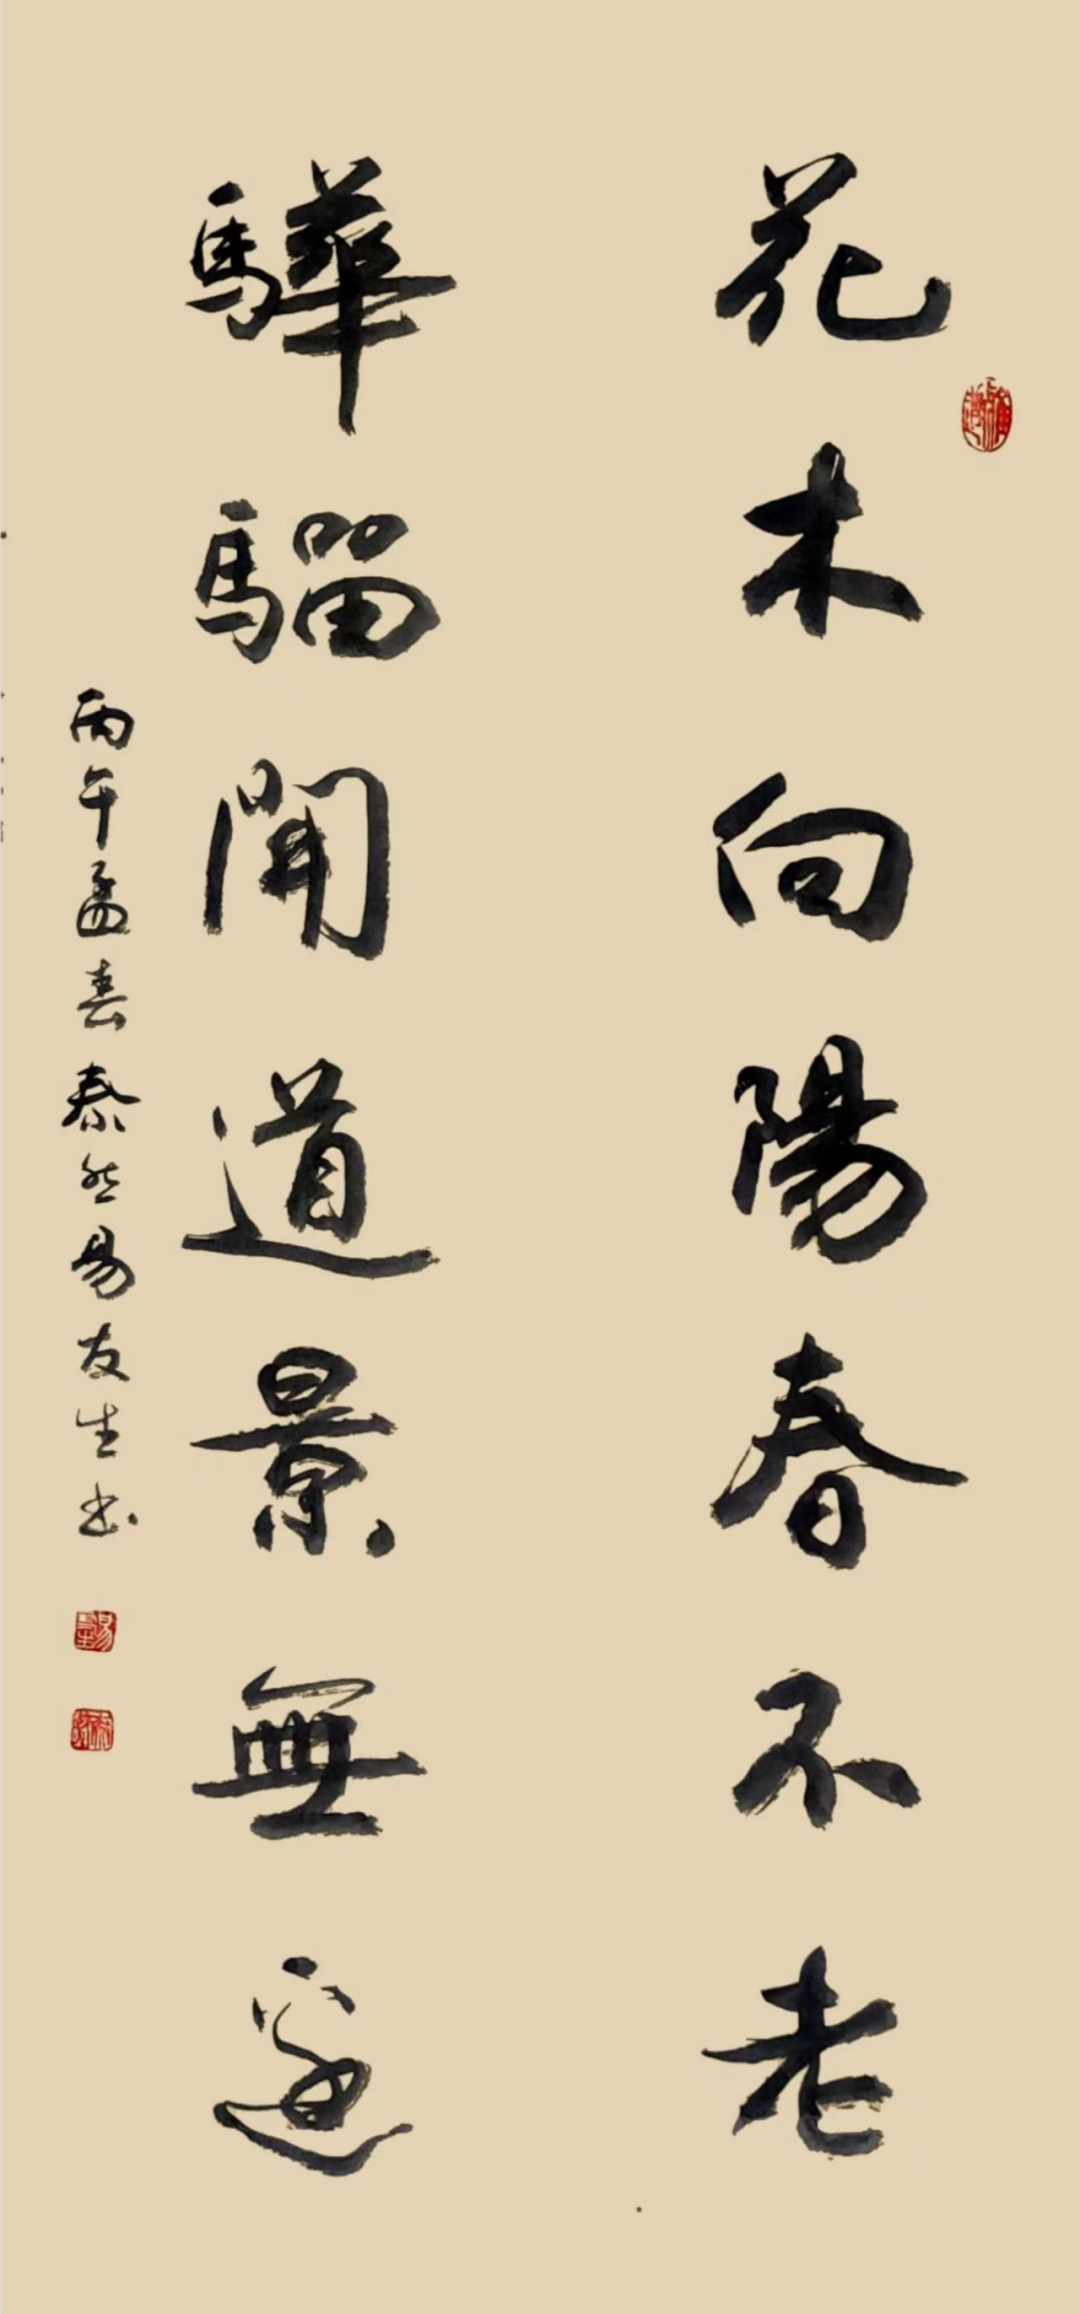 花木向陽春不老
驊騮開道景無邊
丙午孟春泰然易友生书